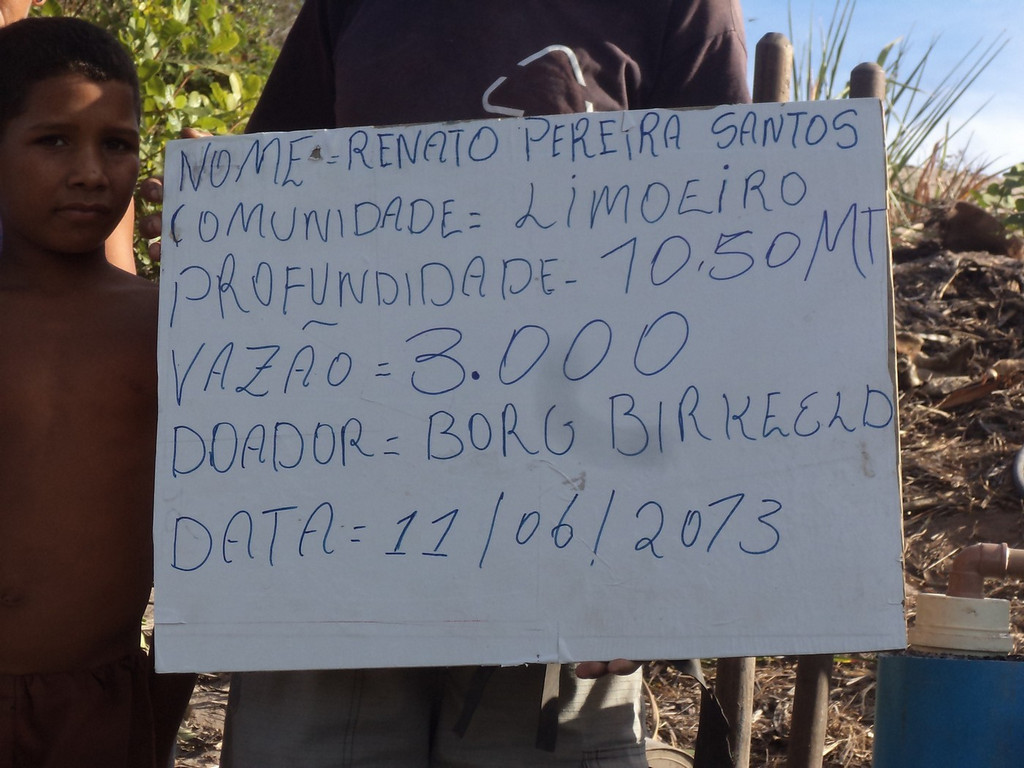 NOME = RENATO PEREIRA SANTOS
COMUNIDADE = LIMOEIRO
PROFUNDIDADE - 10.50 MT
VAZÃO = 3.000
DOADOR = BORG BIRKEELD
DATA = 11/06/2013